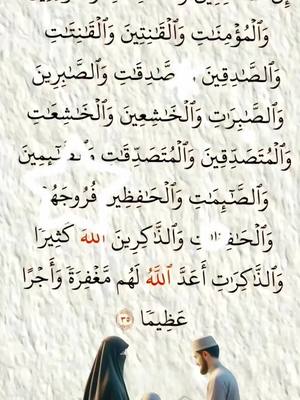 وَٱلْمُؤْمِنَٰتِ وَٱلْقَٰنِتِينَ وَٱلْقَٰنِتَٰتِ
وَٱلصَّٰدِقِينَ صَّٰدِقَٰتِ وَٱلصَّٰبِرِينَ
وَٱلصَّٰبِرَٰتِ وَٱلْخَٰشِعِينَ وَٱلْخَٰشِعَٰتِ
وَٱلْمُتَصَدِّقِينَ وَٱلْمُتَصَدِّقَٰتِ
وَٱلصَّٰٓئِمَٰتِ وَٱلْحَٰفِظِين فُرُوجَهُ
وَٱلذَّٰكِرِينَ ٱللَّهَ كَثِيرًا
وَٱلذَّٰكِرَٰتِ أَعَدَّ ٱللَّهُ لَهُم مَّغْفِرَةً وَأَجْرًا
عَظِيمًا ٣٥